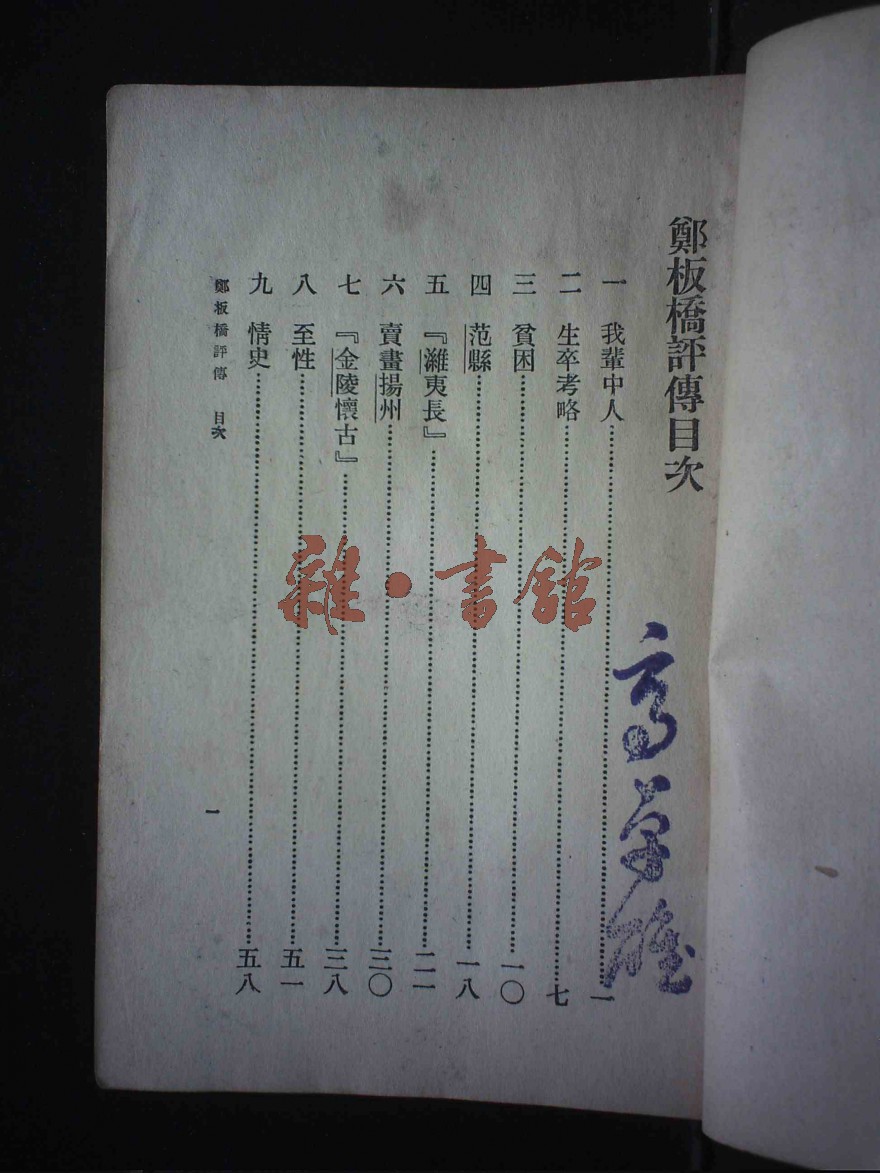 鄭板橋評傳目次
一 我輩中人……一
二 生卒考略……七
三 貧困……一〇
四 范縣……一八
五 『濰夷長』……二一
六 賣畫揚州……三〇
七 『金陵懷古』……三八
八 至性……五一
九 情史……五八
鄭板橋評傳 目次
一
雜·書館